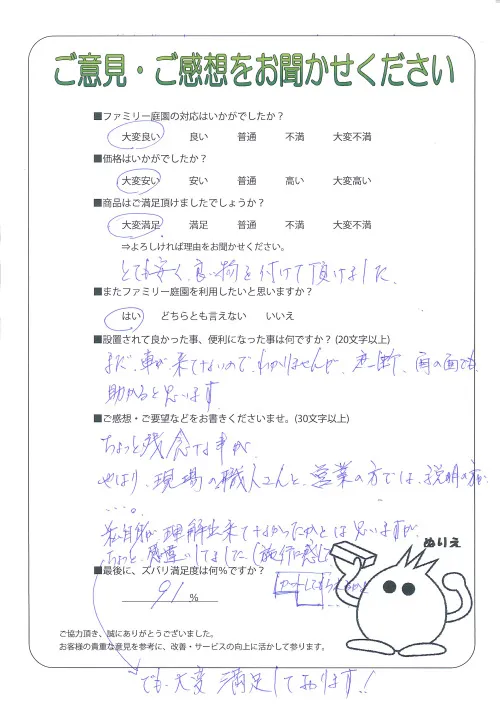 ご意見・ご感想をお聞かせください
■ファミリー庭園の対応はいかがでしたか？
大変良い 良い 普通 不満 大変不満
■価格はいかがでしたか？
大変安い 安い 普通 高い 大変高い
■商品はご満足頂けましたでしょうか？
大変満足 満足 普通 不満 大変不満
⇒よろしければ理由をお聞かせください。
とても安く、良い物を付けて頂けました。
■またファミリー庭園を利用したいと思いますか？
はい どちらとも言えない いいえ
■設置されて良かった事、便利になった事は何ですか？(20文字以上)
まだ、車が来てないので、わかりませんが、 雨の面でも
助かると思います
■ご感想・ご要望などをお書きくださいませ。(30文字以上)
ちょっと残念な事が
やはり、現場の職人さんと、営業の方では、説明の方が
....。
私自身が理解出来てなかったかとは思いますが、
ちょっと、 してました(施行に
ぬりえ
■最後に、ズバリ満足度は何%ですか？
91 %
ご協力頂き、誠にありがとうございました。
お客様の貴重な意見を参考に、改善・サービスの向上に活かして参ります。
でも、大変満足しております!!